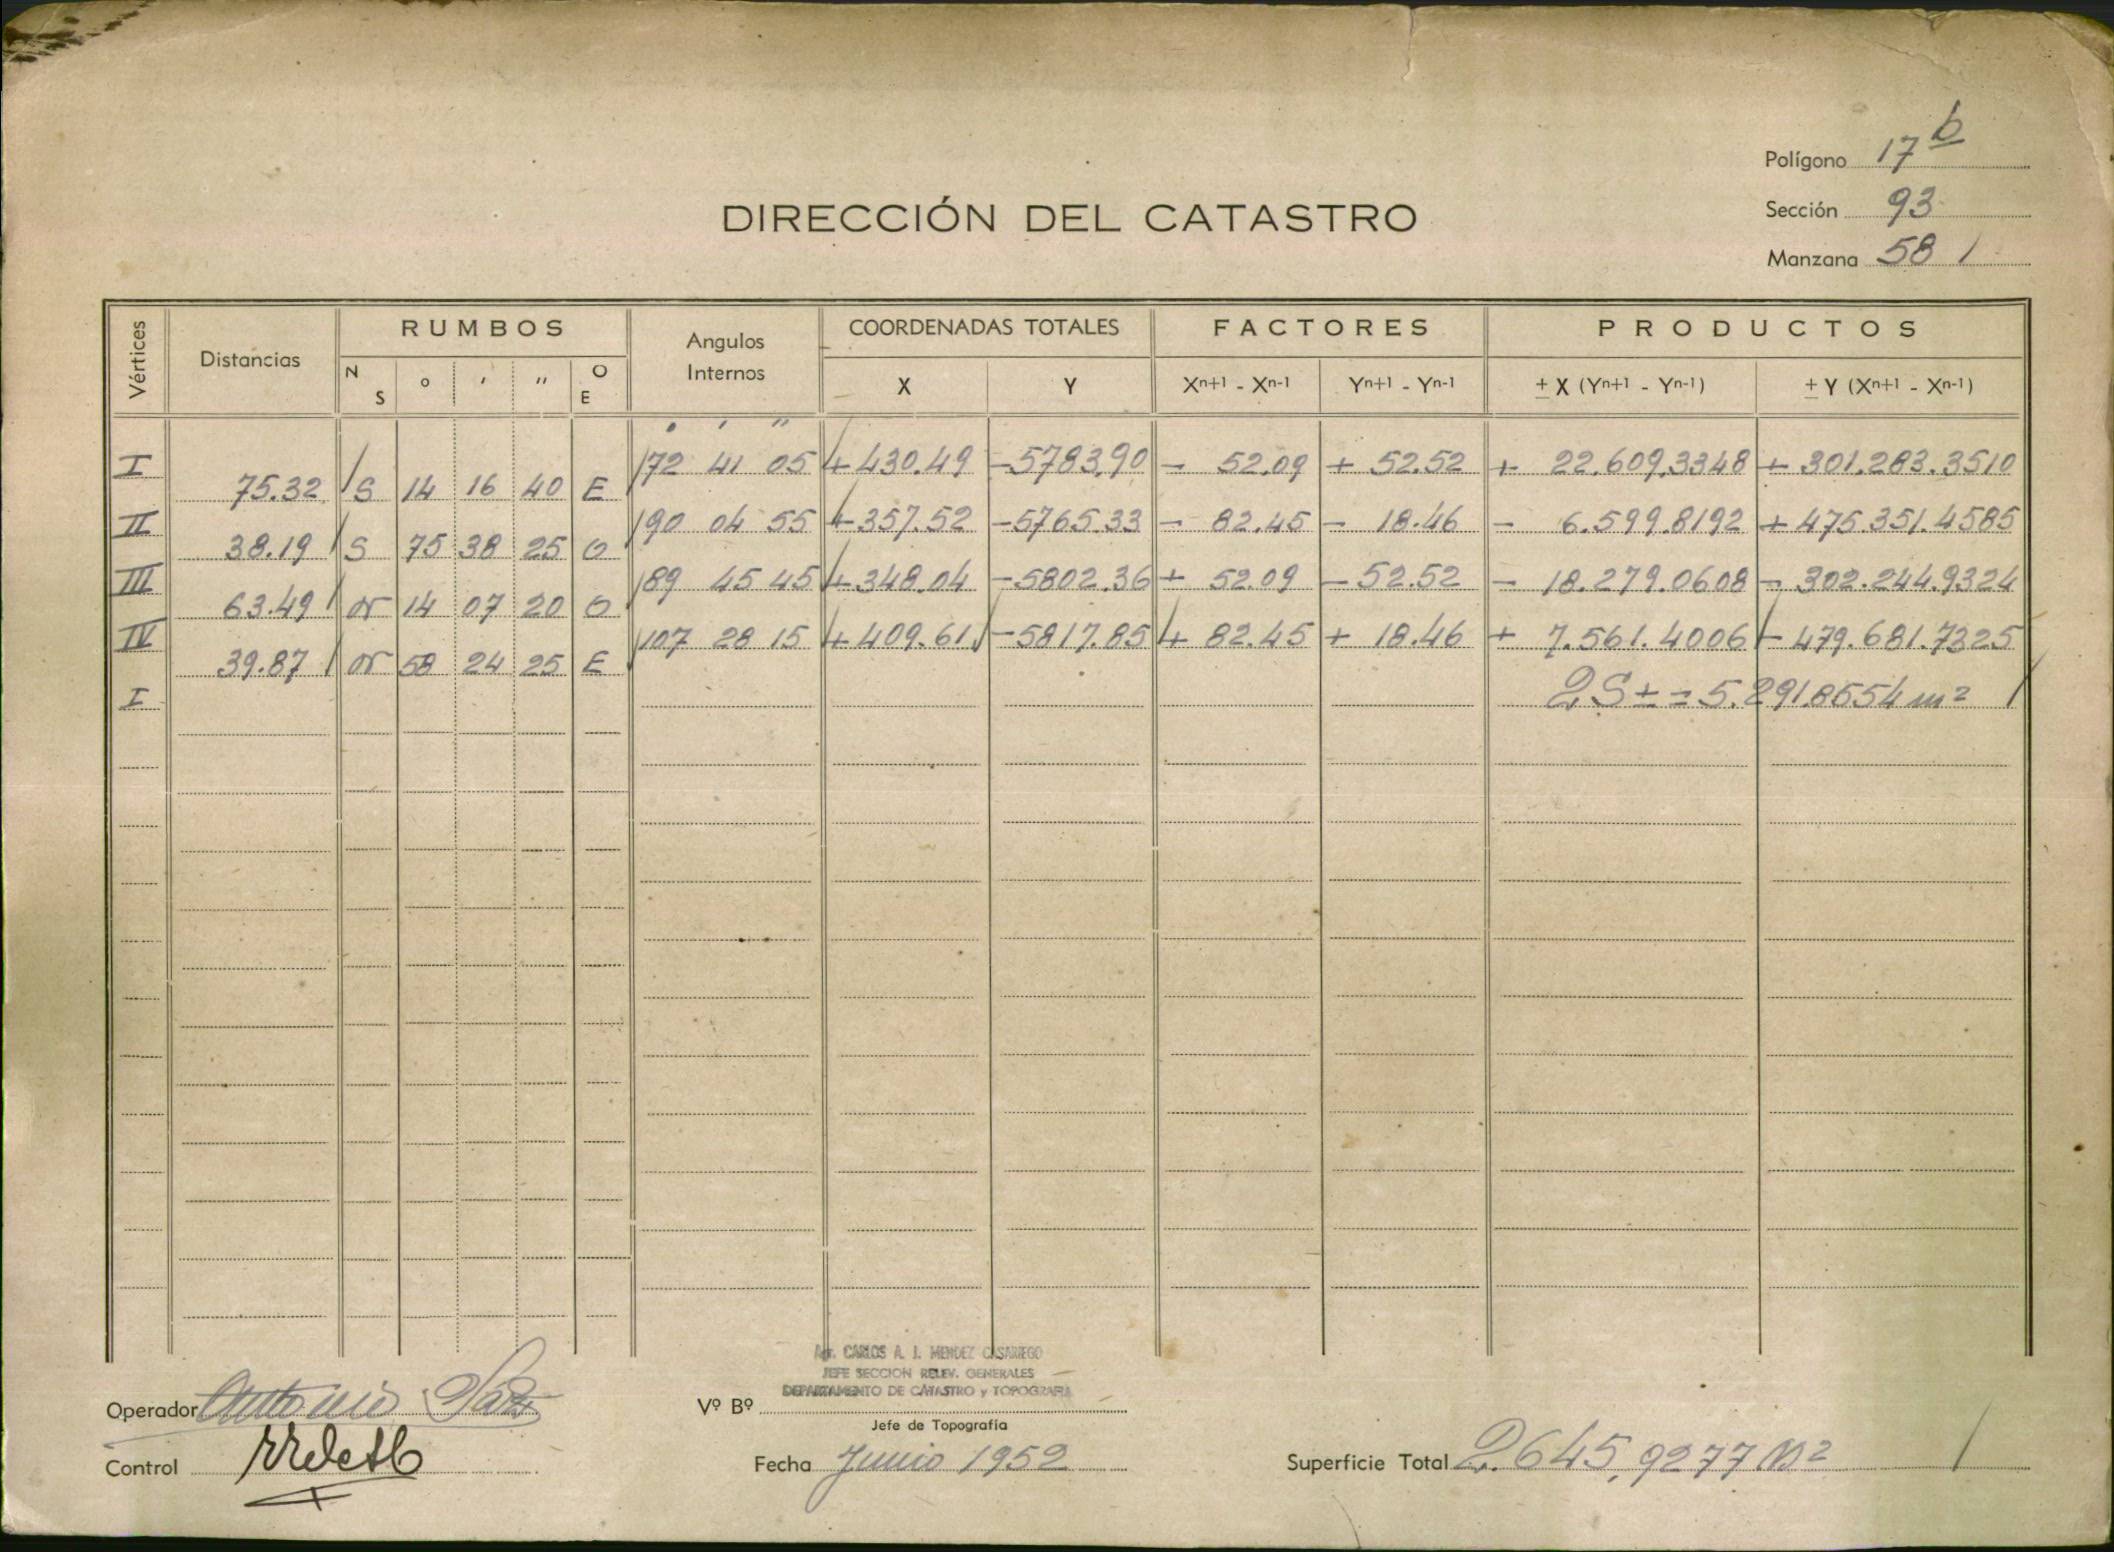 Polígono 17 b
Sección 93
Manzana 58 /
DIRECCIÓN DEL CATASTRO
Vértices Distancias RUMBOS Angulos Internos COORDENADAS TOTALES FACTORES PRODUCTOS
N S o ′ ″ O E X Y Xn+1 - Xn-1 Yn+1 - Yn-1 ± X (Yn+1 - Yn-1) ± Y (Xn+1 - Xn-1)
° ′ ″
I 72 41 05 +430.49 -5783.90 - 52.09 + 52.52 + 22.609.3348 + 301.283.3510
75.32 S 14 16 40 E
II 90 04 55 +357.52 -5765.33 - 82.45 - 18.46 - 6.599.8192 + 475.351.4585
38.19 S 75 38 25 O
III 89 45 45 +348.04 -5802.36 + 52.09 - 52.52 - 18.279.0608 - 302.244.9324
63.49 N 14 07 20 O
IV 107 28 15 +409.61 -5817.85 + 82.45 + 18.46 + 7.561.4006 - 479.681.7325
39.87 N 58 24 25 E
I 2S ± = 5.291.8554 m²
Agr. CARLOS A. J. MENDEZ CASARIEGO
JEFE SECCION RELEV. GENERALES
DEPARTAMENTO DE CATASTRO y TOPOGRAFIA
Operador Antonio
Vº Bº
Jefe de Topografía
Control
Fecha Junio 1952
Superficie Total 2.645,9277 m² /